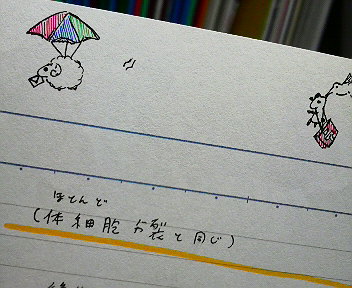 ほとんど
(体細胞分裂と同じ)